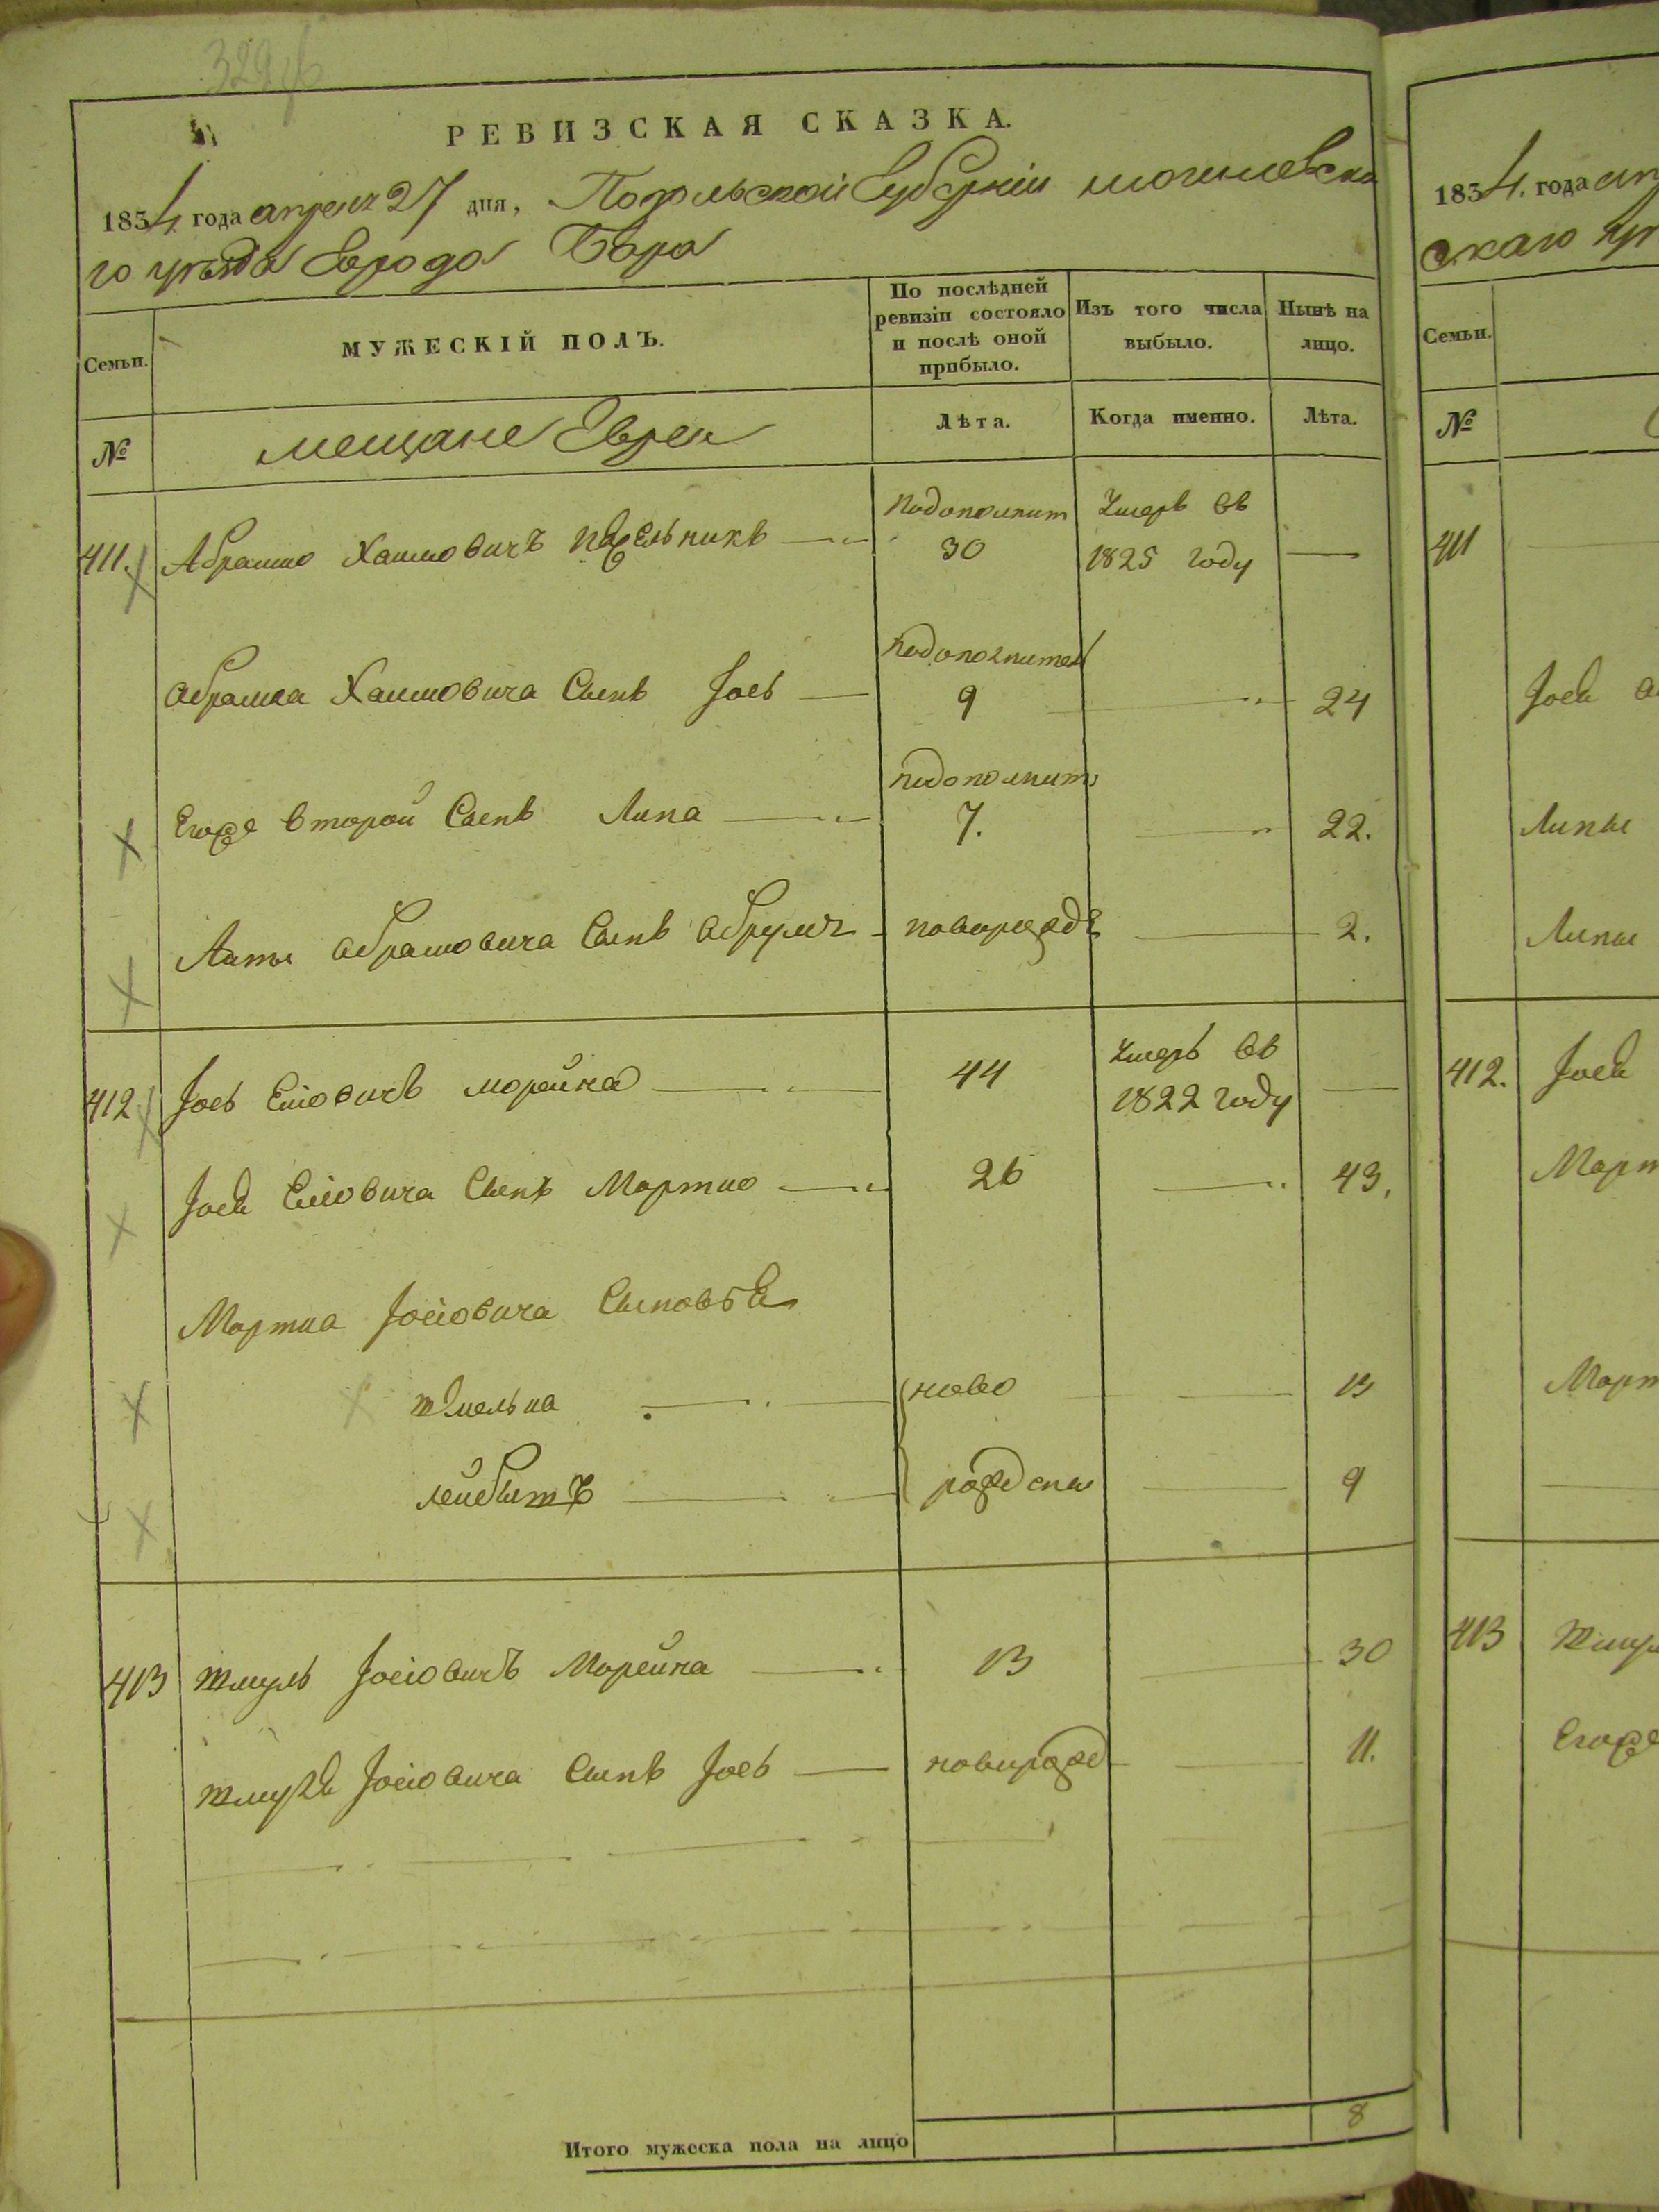 РЕВИЗСКАЯ СКАЗКА.
1834 года апреля 27 дня, Подольской Губернiи могилевска
го уезда Города Бара
Семьи.
МУЖЕСКІЙ ПОЛЪ.
По послѣдней ревизіи состояло и послѣ оной прибыло.
Изъ того числа выбыло.
Нынѣ на лицо.
№
мещане Евреи
Лѣта.
Когда именно.
Лѣта.
411. Абрамко Хаимовичъ
Подополнит 30
Умеръ въ 1825 году
Абрамка Хаимовича Сынъ Iось
подополнител 9
24
Егоже второй Сынъ Липа
подополнит 7.
22.
Липы Абрамовича Сынъ Абрумъ
новорожд 2.
412 Iось Еліовичъ Морейна
44
Умеръ въ 1822 году
Iося Еліовича Сынъ Мортко 26 43.
Мортка Iосіовича Сыновья
Шмелька ново 13
Лейбышъ рожденые 9
413 Шмуль Iосіовичъ Морейна 13 30
Шмуля Iосіовича Сынъ Iось новорожд 11.
Итого мужеска пола на лицо 8
1834. года ап
скаго у
Семьи.
№
411
Iося
Липы
Липы
412. Iося
Март
Март
413 Шмул
Егоже